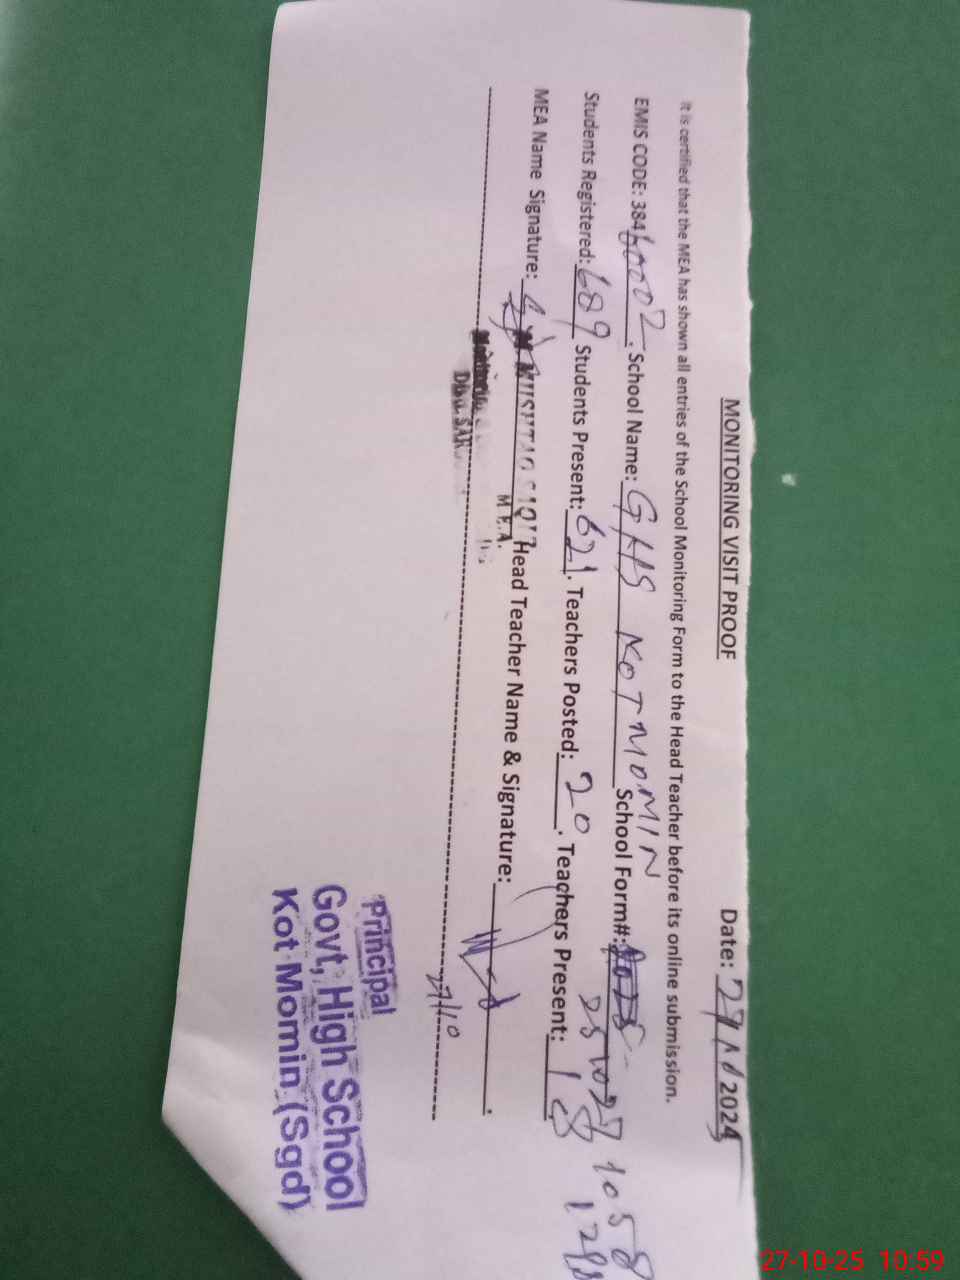 MONITORING VISIT PROOF Date: 27/10/2025
It is certified that the MEA has shown all entries of the School Monitoring Form to the Head Teacher before its online submission.
EMIS CODE: 38460002. School Name: GHS KOTMOMIN School Form#: 251027 1058
Students Registered: 689 Students Present: 621. Teachers Posted: 20. Teachers Present: 18
MEA Name Signature: MUSHTAQ Head Teacher Name & Signature:
M.E.A.
27/10
Principal
Govt, High School
Kot Momin (Sgd)
27-10-25 10:59